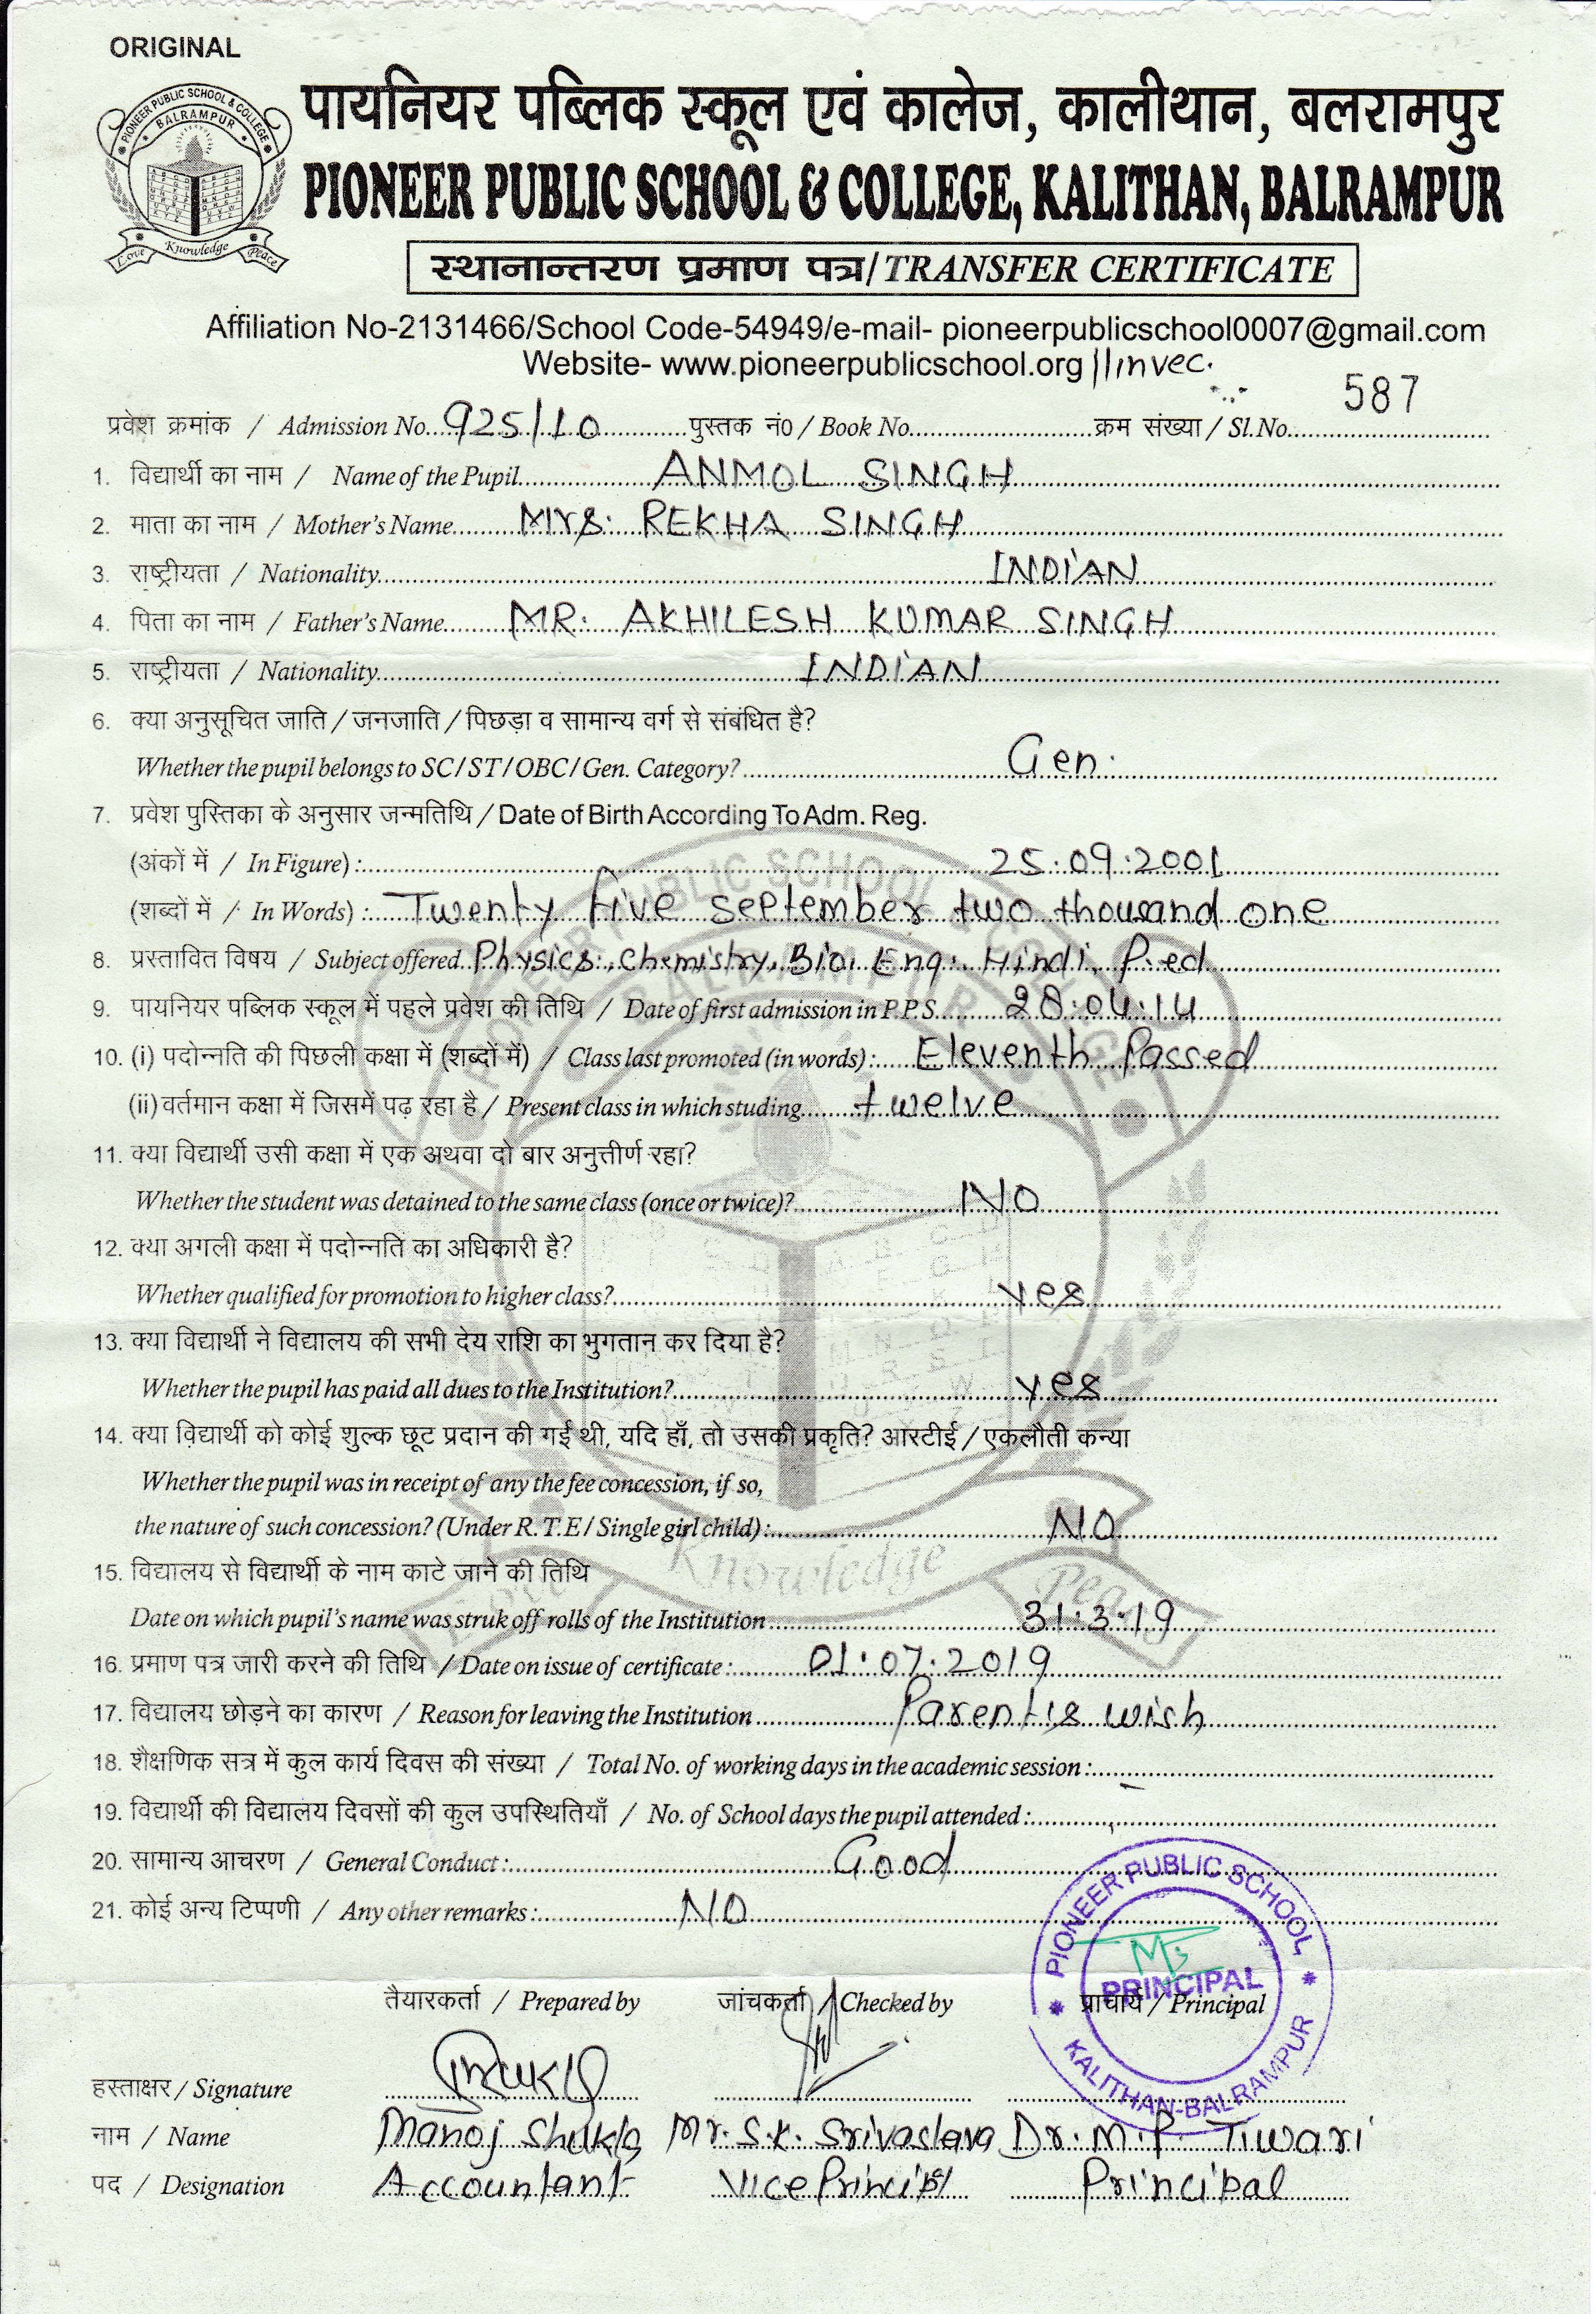 ORIGINAL
PIONEER PUBLIC SCHOOL & COLLEGE
BALRAMPUR
Love Knowledge Peace
पायनियर पब्लिक स्कूल एवं कालेज, कालीथान, बलरामपुर
PIONEER PUBLIC SCHOOL & COLLEGE, KALITHAN, BALRAMPUR
स्थानान्तरण प्रमाण पत्र/TRANSFER CERTIFICATE
Affiliation No-2131466/School Code-54949/e-mail- pioneerpublicschool0007@gmail.com
Website- www.pioneerpublicschool.org
587
प्रवेश क्रमांक / Admission No. 925/10 पुस्तक नं0 / Book No. क्रम संख्या / Sl.No.
1. विद्यार्थी का नाम / Name of the Pupil ANMOL SINGH
2. माता का नाम / Mother's Name Mrs. REKHA SINGH
3. राष्ट्रीयता / Nationality INDIAN
4. पिता का नाम / Father's Name MR. AKHILESH KUMAR SINGH
5. राष्ट्रीयता / Nationality INDIAN
6. क्या अनुसूचित जाति / जनजाति / पिछड़ा व सामान्य वर्ग से संबंधित है?
Whether the pupil belongs to SC/ST/OBC/Gen. Category? Gen.
7. प्रवेश पुस्तिका के अनुसार जन्मतिथि / Date of Birth According To Adm. Reg.
(अंकों में / In Figure) : 25.09.2001
(शब्दों में / In Words) : Twenty five september two thousand one
8. प्रस्तावित विषय / Subject offered Physics, Chemistry, Bio, Eng, Hindi, P.ed
9. पायनियर पब्लिक स्कूल में पहले प्रवेश की तिथि / Date of first admission in P.P.S. 28.04.14
10. (i) पदोन्नति की पिछली कक्षा में (शब्दों में) / Class last promoted (in words) : Eleventh Passed
(ii) वर्तमान कक्षा में जिसमें पढ़ रहा है / Present class in which studing twelve
11. क्या विद्यार्थी उसी कक्षा में एक अथवा दो बार अनुत्तीर्ण रहा?
Whether the student was detained to the same class (once or twice)? NO
12. क्या अगली कक्षा में पदोन्नति का अधिकारी है?
Whether qualified for promotion to higher class? yes
13. क्या विद्यार्थी ने विद्यालय की सभी देय राशि का भुगतान कर दिया है?
Whether the pupil has paid all dues to the Institution? yes
14. क्या विद्यार्थी को कोई शुल्क छूट प्रदान की गई थी, यदि हाँ, तो उसकी प्रकृति? आरटीई / एकलौती कन्या
Whether the pupil was in receipt of any the fee concession, if so,
the nature of such concession? (Under R.T.E/ Single girl child) : NO
15. विद्यालय से विद्यार्थी के नाम काटे जाने की तिथि
Date on which pupil's name was struk off rolls of the Institution 31.3.19
16. प्रमाण पत्र जारी करने की तिथि / Date on issue of certificate : 01.07.2019
17. विद्यालय छोड़ने का कारण / Reason for leaving the Institution Parent's wish
18. शैक्षणिक सत्र में कुल कार्य दिवस की संख्या / Total No. of working days in the academic session :
19. विद्यार्थी की विद्यालय दिवसों की कुल उपस्थितियाँ / No. of School days the pupil attended :
20. सामान्य आचरण / General Conduct : Good
21. कोई अन्य टिप्पणी / Any other remarks : NO
PIONEER PUBLIC SCHOOL
PRINCIPAL
KALITHAN-BALRAMPUR
तैयारकर्ता / Prepared by जांचकर्ता / Checked by प्राचार्य / Principal
हस्ताक्षर / Signature
नाम / Name Manoj Shukla Mr. S.K. Srivastava Dr. M.P. Tiwari
पद / Designation Accountant Vice Principal Principal